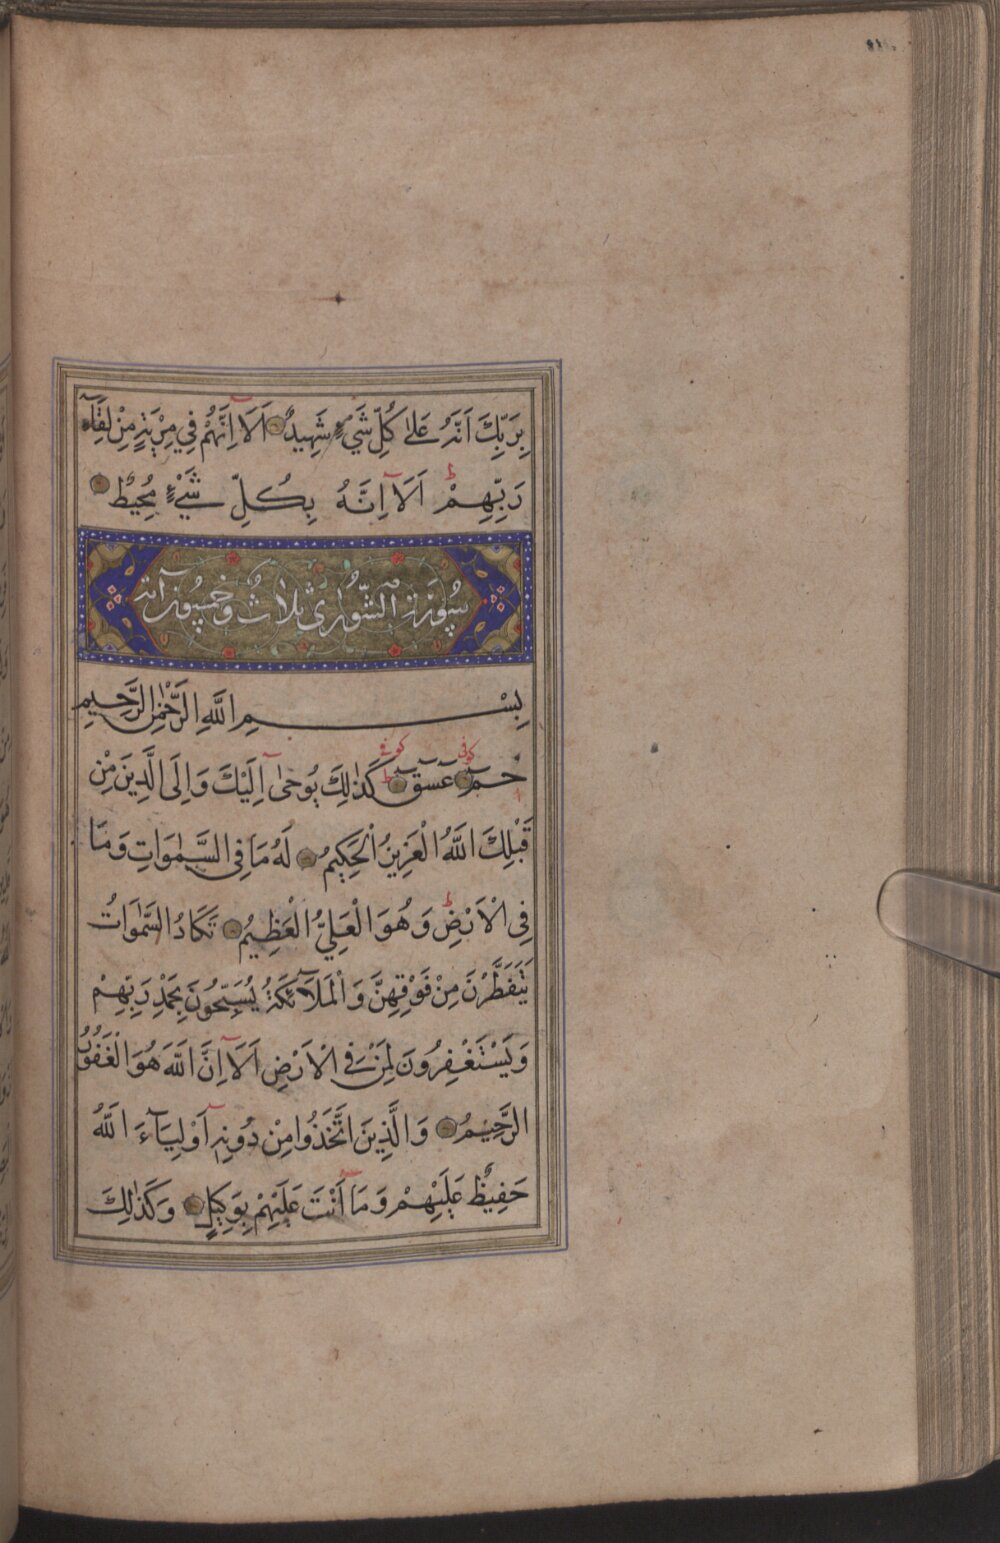 بِرَبِّكَ اَنَّهُ عَلٰى كُلِّ شَيْءٍ شَهِيدٌ اَلَآ اِنَّهُمْ فِي مِرْيَةٍ مِنْ لِقَآءِ
رَبِّهِمْ ط اَلَآ اِنَّهُ بِكُلِّ شَيْءٍ مُحِيطٌ
سُورَةُ الشُّورٰى ثلاث وخمسون آية
بِسْمِ اللّٰهِ الرَّحْمٰنِ الرَّحِيمِ
كوفى كوفى
حٰمٓ عٓسٓقٓ ط كَذٰلِكَ يُوحٰٓى اِلَيْكَ وَاِلَى الَّذِينَ مِنْ
قَبْلِكَ اللّٰهُ الْعَزِيزُ الْحَكِيمُ لَهُ مَا فِى السَّمٰوَاتِ وَمَا
فِى الْاَرْضِ ط وَهُوَ الْعَلِيُّ الْعَظِيمُ تَكَادُ السَّمٰوَاتُ
يَتَفَطَّرْنَ مِنْ فَوْقِهِنَّ وَالْمَلٰٓئِكَةُ يُسَبِّحُونَ بِحَمْدِ رَبِّهِمْ
وَيَسْتَغْفِرُونَ لِمَنْ فِي الْاَرْضِ اَلَآ اِنَّ اللّٰهَ هُوَ الْغَفُورُ
الرَّحِيمُ وَالَّذِينَ اتَّخَذُوا مِنْ دُونِهِ اَوْلِيَآءَ اللّٰهُ
حَفِيظٌ عَلَيْهِمْ وَمَآ اَنْتَ عَلَيْهِمْ بِوَكِيلٍ وَكَذٰلِكَ